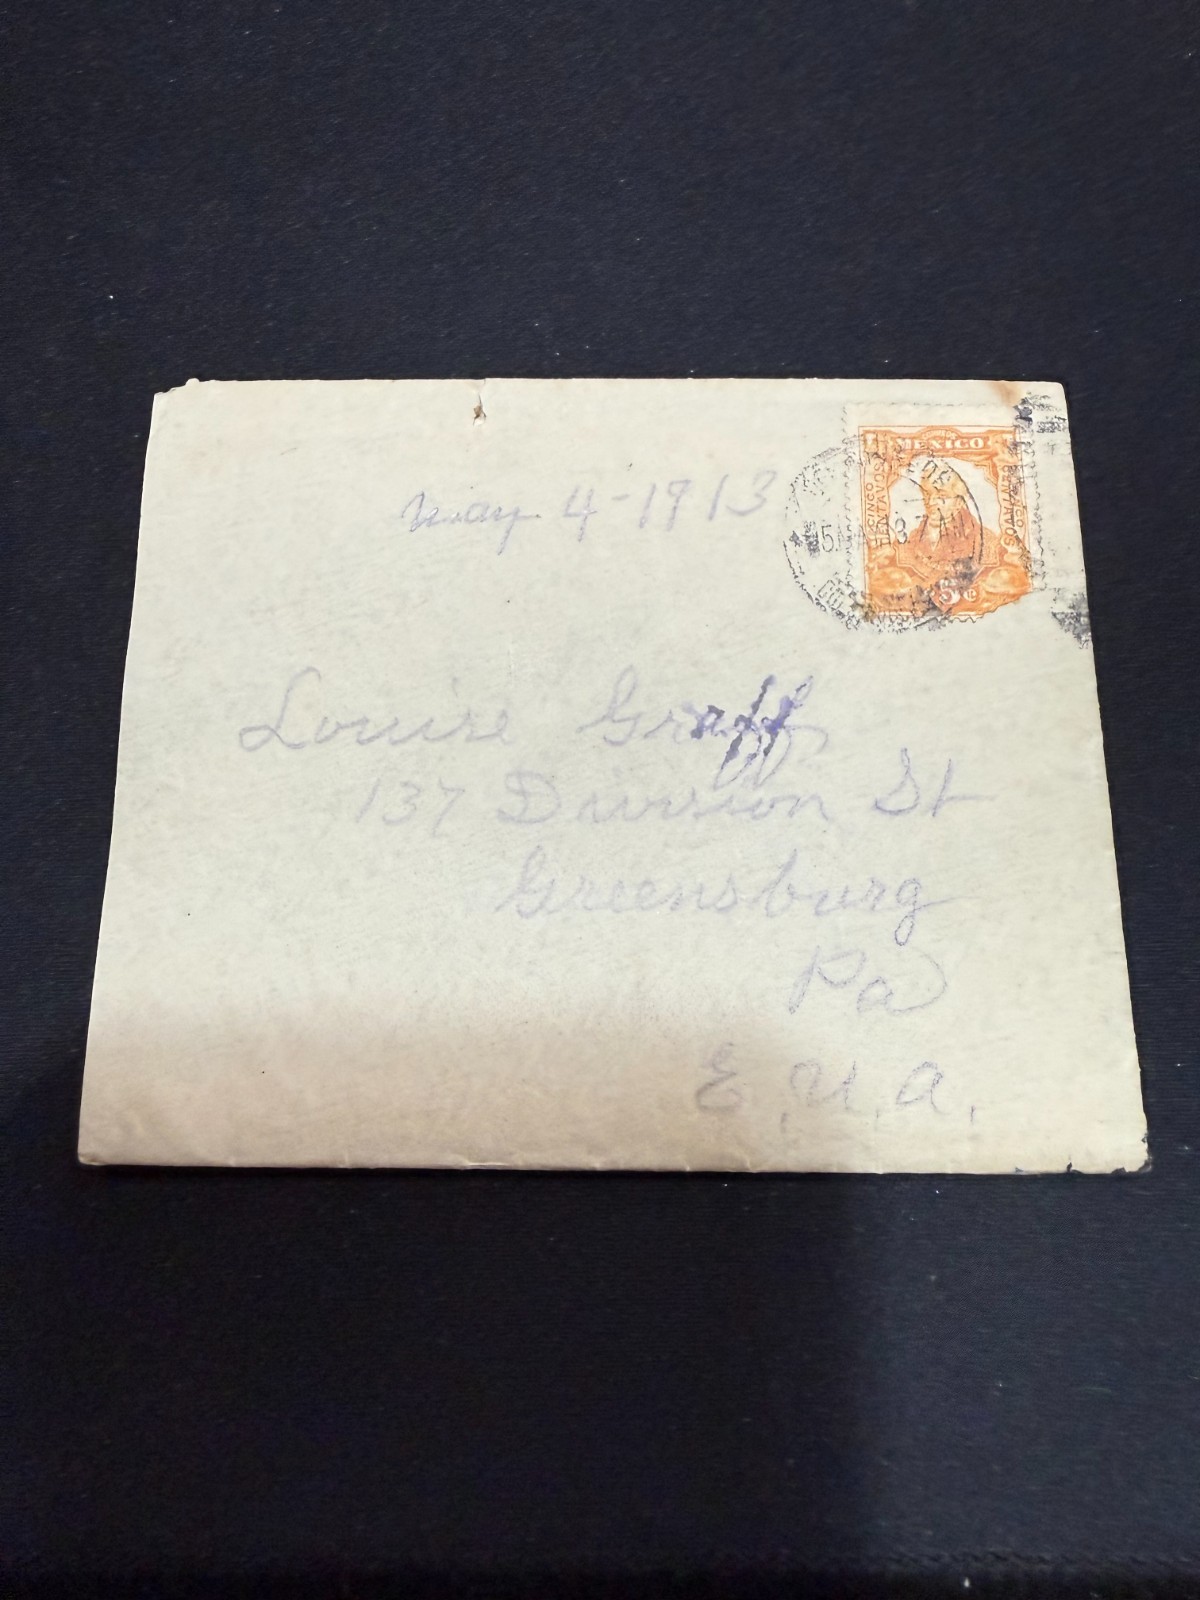 May 4-1913
MEXICO
CINCO CENTAVOS
CINCO CENTAVOS
5 7 AM
5c
Louise Graff
137 Division St
Greensburg
Pa
E.U.A.